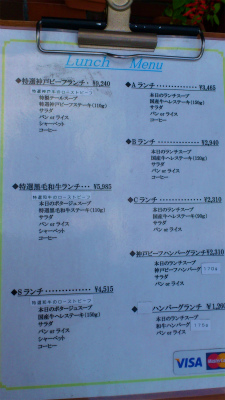 Lunch Menu
◆特選神戸ビーフランチ・ ¥9,240
特選神戸牛のローストビーフ
特製テールスープ
特選神戸ビーフステーキ(110g)
サラダ
パン or ライス
シャーベット
コーヒー
◆特選黒毛和牛ランチ… ¥5,985
特選和牛のローストビーフ
本日のポタージュスープ
特選黒毛和牛ステーキ(110g)
サラダ
パン or ライス
シャーベット
コーヒー
◆Sランチ…………… ¥4,515
特選和牛のローストビーフ
本日のポタージュスープ
国産牛ヘレステーキ(150g)
サラダ
パン or ライス
シャーベット
コーヒー
◆Aランチ…………… ¥3,465
本日のランチスープ
国産牛ヘレステーキ(150g)
サラダ
パン or ライス
コーヒー
◆Bランチ…………… ¥2,940
本日のランチスープ
国産牛ヘレステーキ(120g)
サラダ
パン or ライス
コーヒー
◆Cランチ…………… ¥2,310
本日のランチスープ
国産牛ヘレステーキ(90g)
サラダ
パン or ライス
コーヒー
◆神戸ビーフハンバーグランチ¥2,310
本日のランチスープ
神戸ビーフハンバーグ 170g
サラダ
パン or ライス
コーヒー
◆ ハンバーグランチ ¥1,
本日のランチスープ
和牛ハンバーグ 170g
サラダ
パン or ライス
VISA